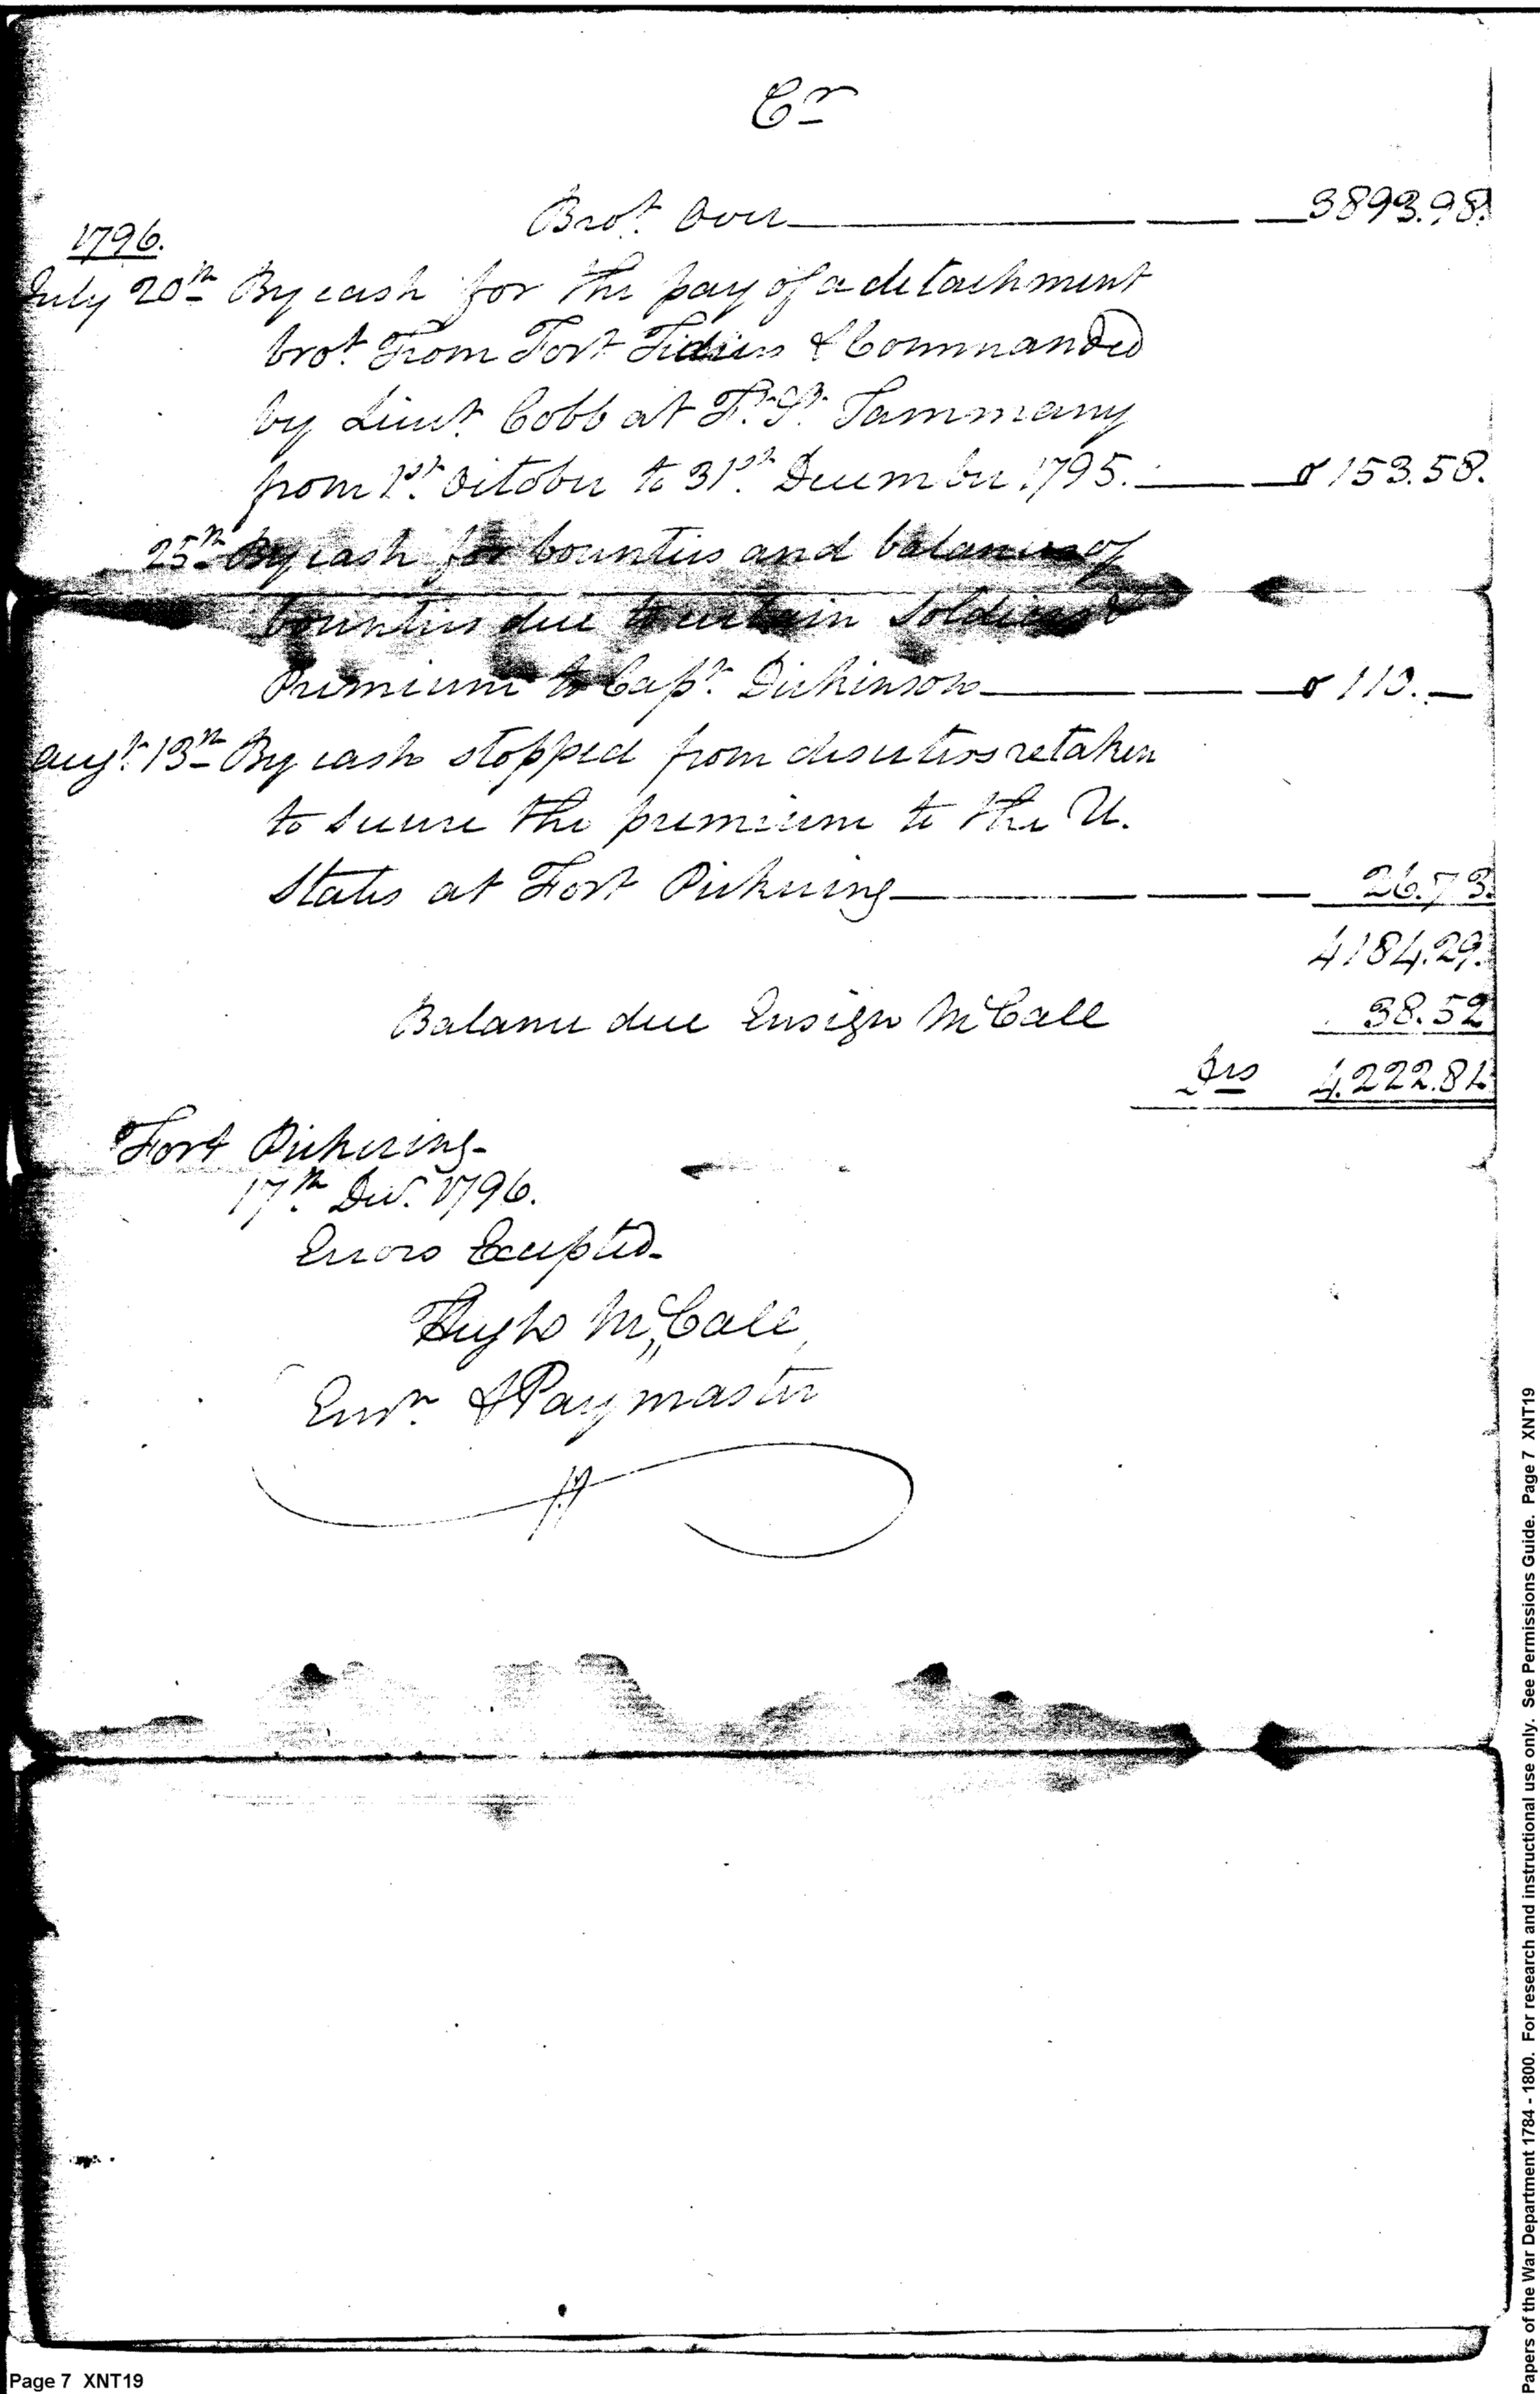 Cr
Brot. Over 3893.98.
1796.
July 20th By cash for the pay of a detachment
brot. From Fort Fidius & Commanded
by Lieut. Cobb at Ft. St. Tammany
from 1st. October to 31st. December 1795. 153.58.
25th By cash for bounties and balances of
bounties due to certain Soldiers &
Premium to Capt. Dickinson 110.
Augt. 13th By cash stopped from deserters retaken
to secure the premium to the U.
States at Fort Pickering 26.73.
4184.29.
Balance due Ensign McCall 38.52
Drs 4.222.81
Fort Pickering
17th Decr. 1796.
Errors Excepted
Hugh McCall,
Ensn. & Paymaster
Page 7 XNT19
Papers of the War Department 1784 - 1800. For research and instructional use only. See Permissions Guide. Page 7 XNT19